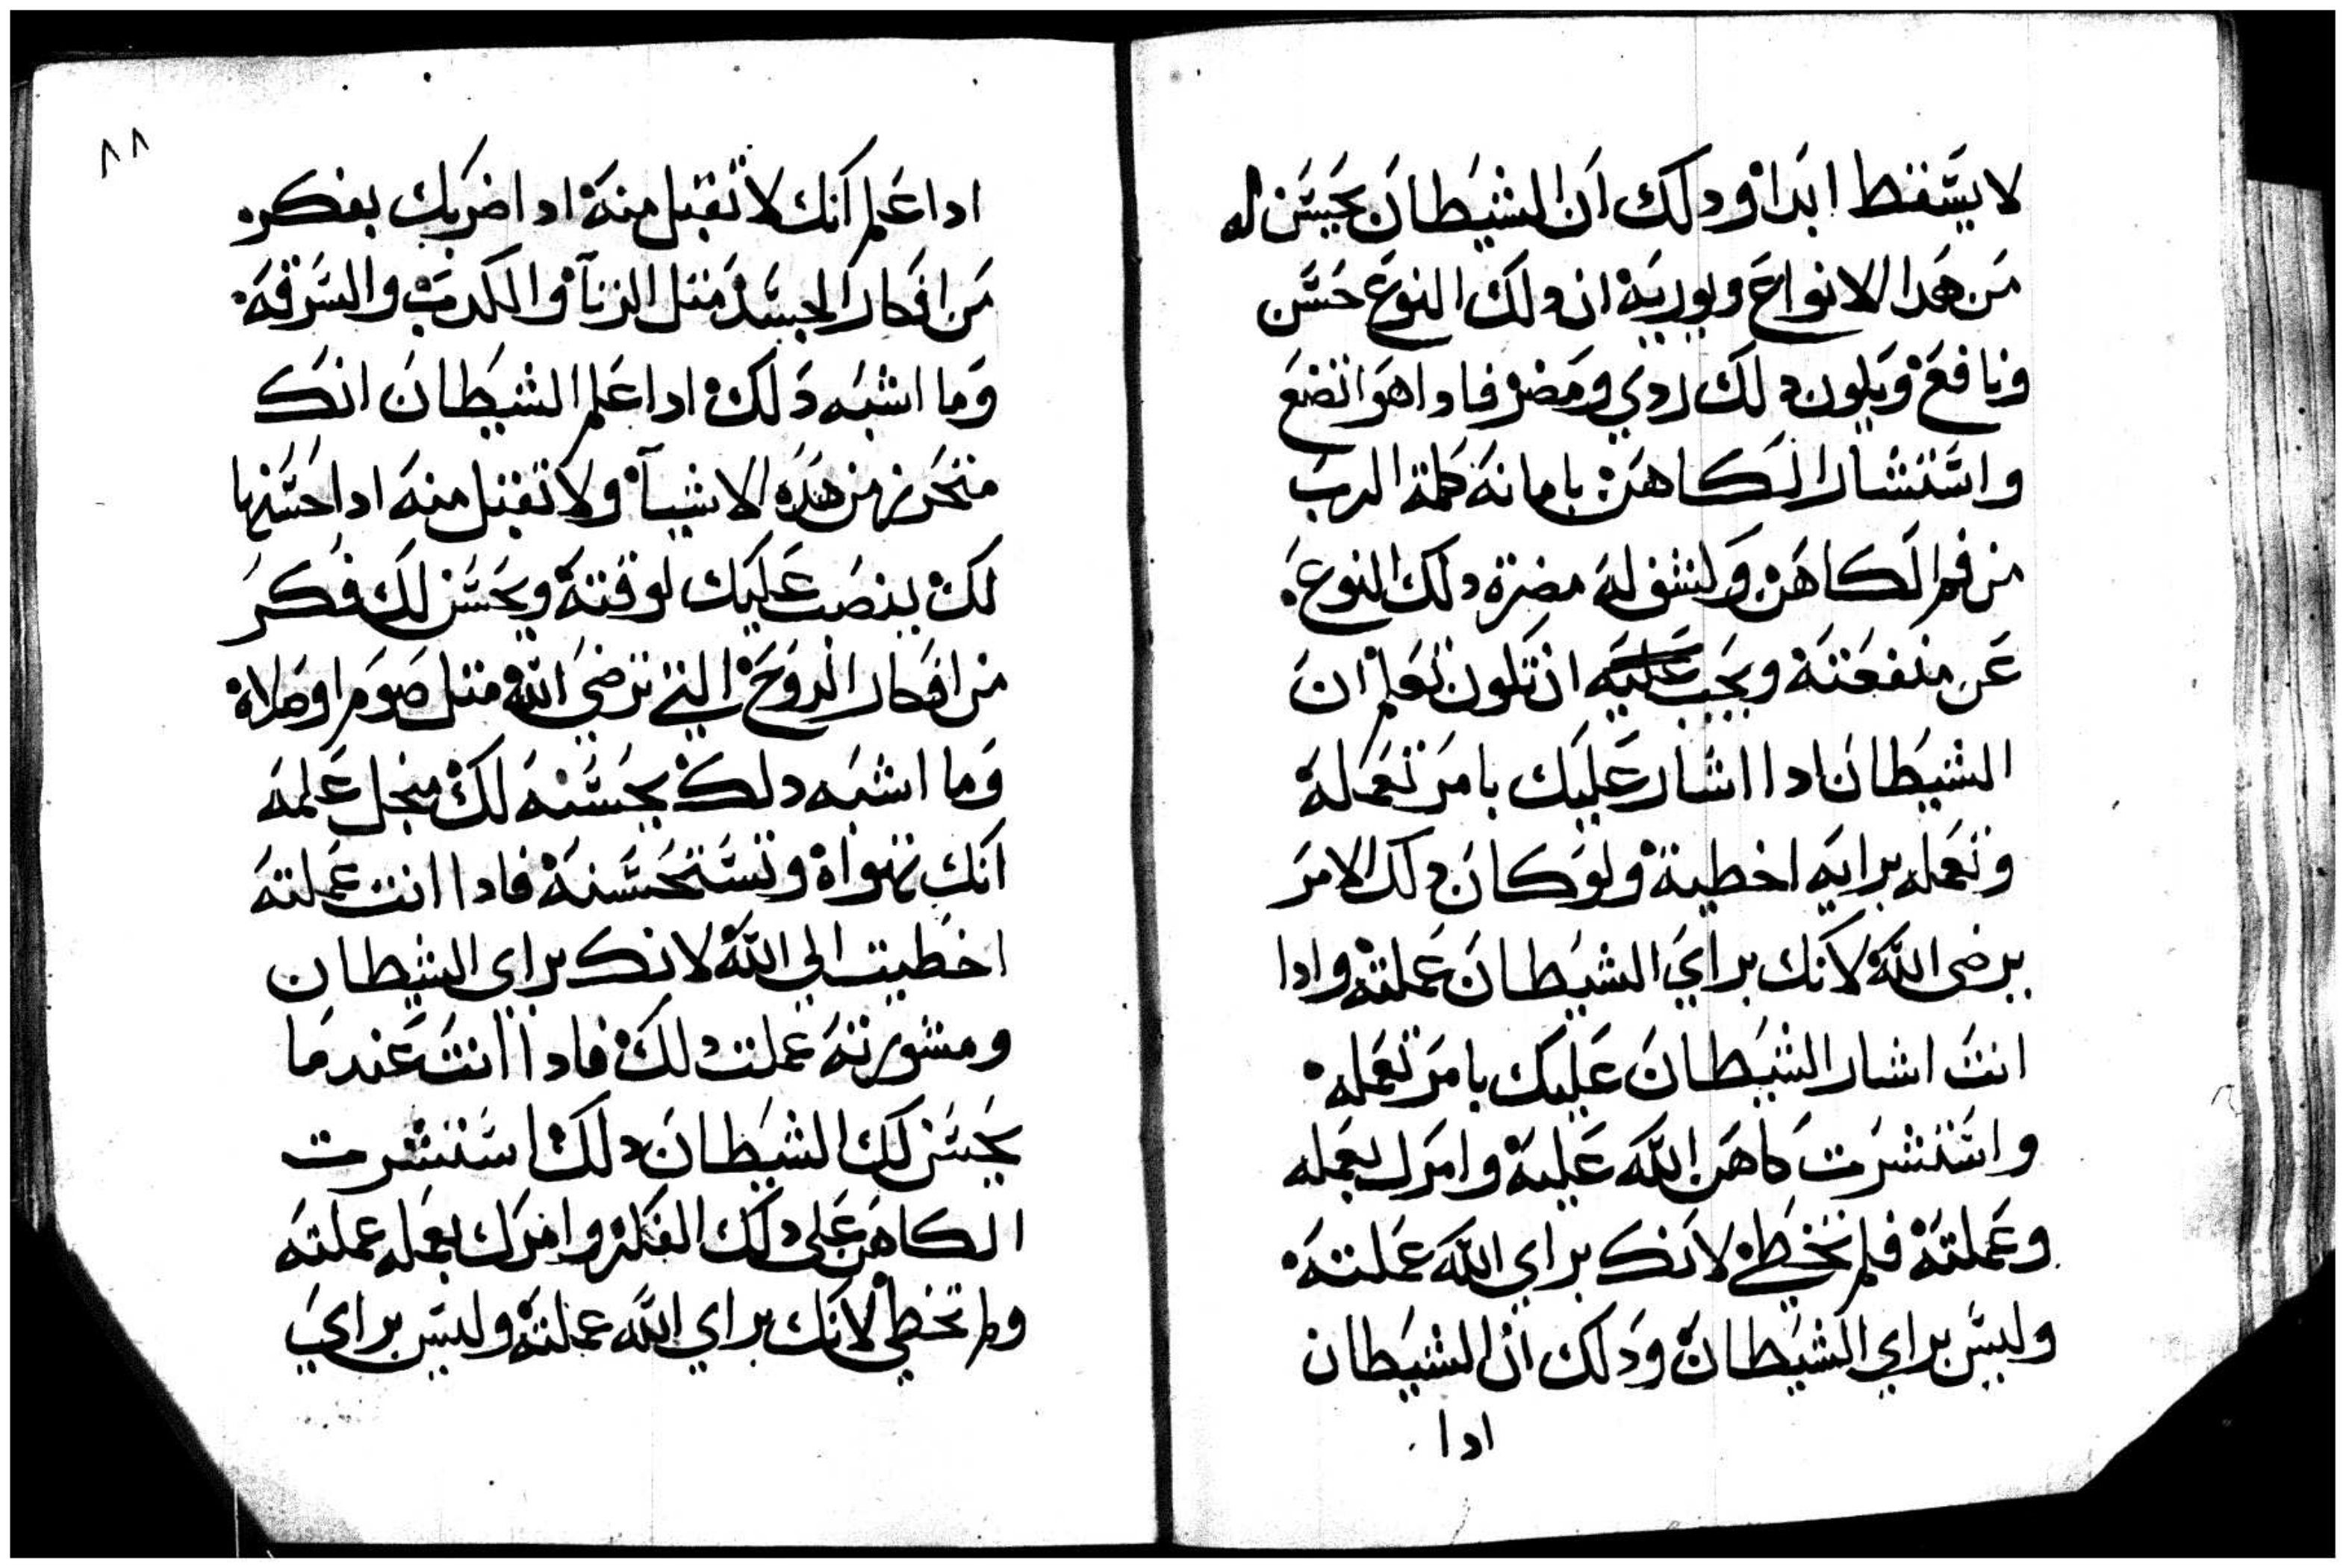 لا يسقط ابدا ودلك ان الشيطان يحسن له
من هدا الانواع ويوريه ان دلك النوع حسن
ونافع ويكون دلك ردي ومضر فادا هو اتضع
واستشار الكاهن بامانة كلمة الرب
من فم الكاهن ولنشق له مضرة دلك النوع
عن منفعته ويجب عليه ان تكون تعلم ان
الشيطان ادا اشار عليك بامر تعمله
وتعمله برايه اخطية ولو كان دلك الامر
يرضى الله لانك براي الشيطان عملته وادا
انت اشار الشيطان عليك بامر تعمله
واستشرت كاهن الله عليه وامرك بعمله
وعملته فلم تخطي لانك براي الله عملته
وليس براي الشيطان ودلك ان الشيطان
ادا
٨٨
ادا علم انك لا تقبل منه ادا ضربك بفكره
من افكار الجسد متل الزنا والكدب والسرقة
وما اشبه دلك ادا علم الشيطان انك
متحرز من هده الاشيآ ولا تقبل منه ادا حسنها
لك ينصب عليك لوقته ويحسن لك فكر
من افكار الروح التي ترضي الله متل صوم او صلاة
وما اشبه دلك يحسنه لك منجل علمه
انك تهواه وتستحسنه فادا انت عملته
اخطيت الي الله لانك براي الشيطان
ومشورته عملت دلك فادا انت عندما
يحسن لك الشيطان دلك استشرت
الكاهن على دلك الفكر وامرك بعمله عملته
ولم تخطي لانك براي الله عملته وليس براي